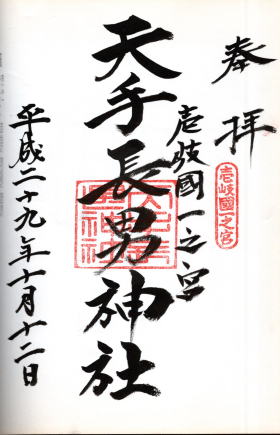 奉拝
壱岐國一之宮
壱岐國一之宮
天手長男神社
平成二十九年十月十二日